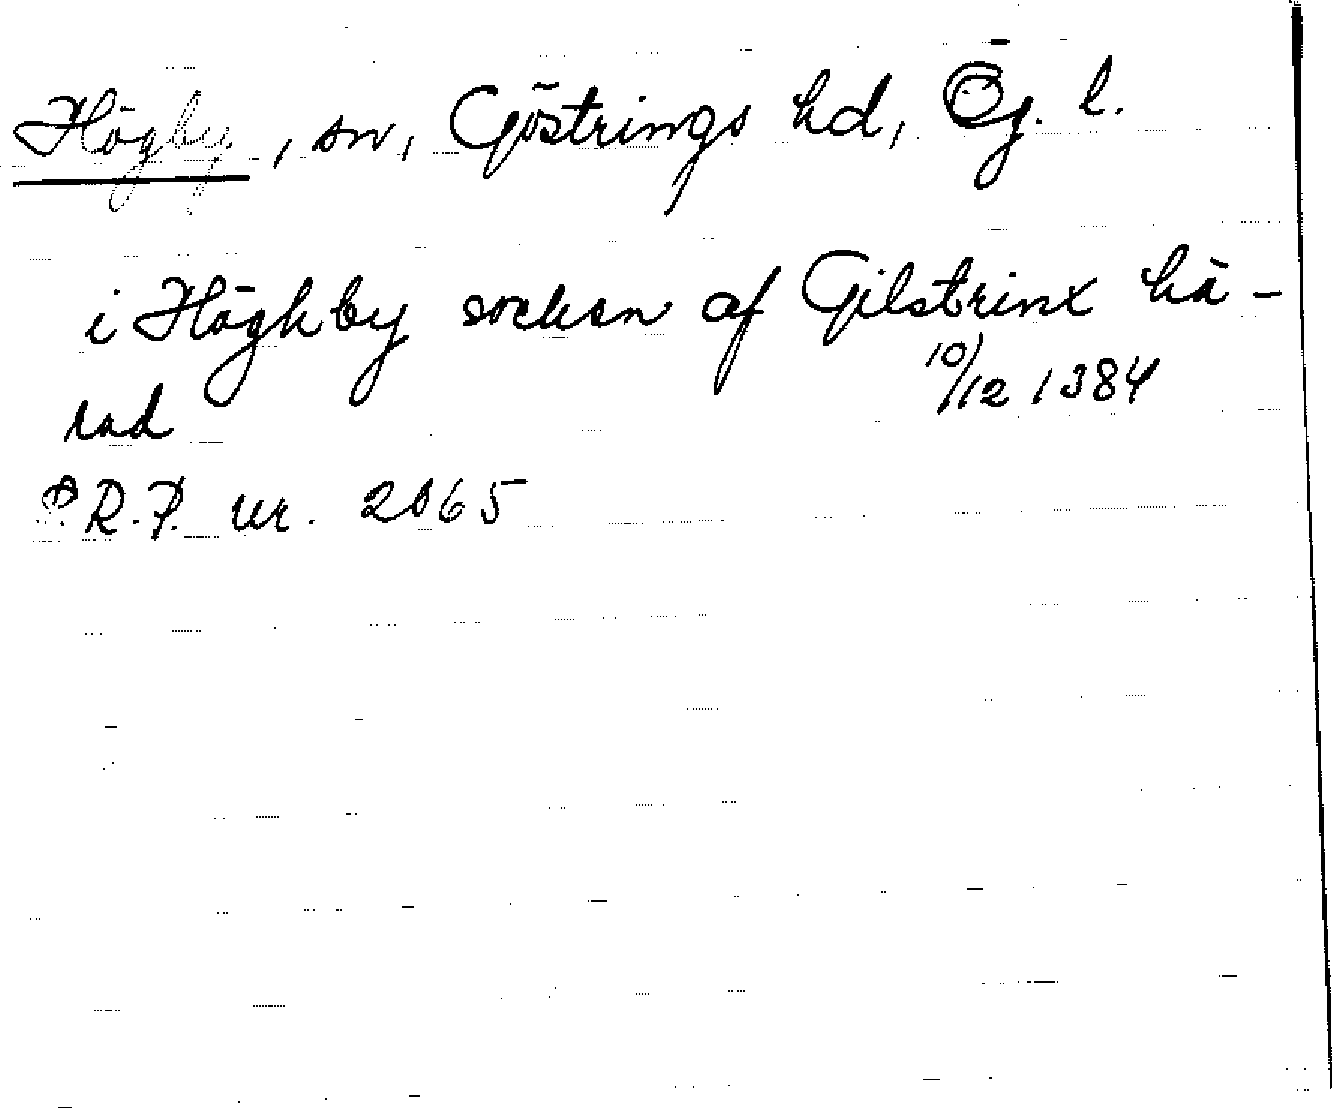 Högby, sn, Göstrings hd, Ög. l.
i Höghby sockan af Gilstrinx hä-
rad 10/12 1384
P R.P. nr. 2065